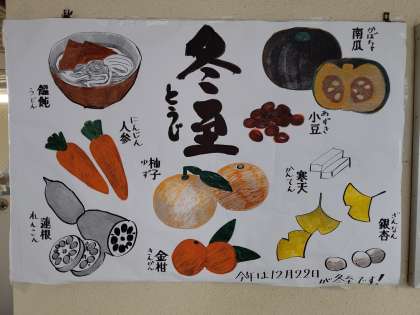 冬至
とうじ
南瓜
かぼちゃ
饂飩
うどん
小豆
あずき
人参
にんじん
柚子
ゆず
寒天
かんてん
蓮根
れんこん
金柑
きんかん
銀杏
ぎんなん
今年は12月22日
が冬至です!